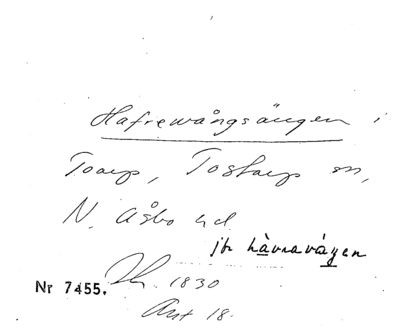 Hafrewångsängen i
Toarp, Tostarp sn,
N. Åsbo hd
jfr hàvravágen
Nr 7455. 1830
Akt 18.